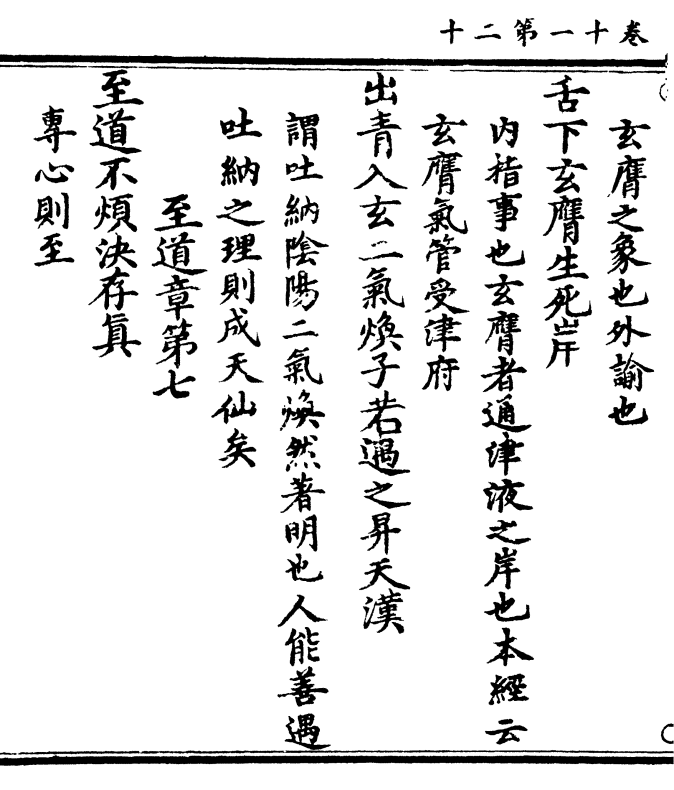 卷十一第二十
玄膺之象也外諭也
舌下玄膺生死岸
内指事也玄膺者通津液之岸也本經云
玄膺氣管受津府
出青入玄二氣煥子若遇之昇天漢
謂吐納陰陽二氣煥然著明也人能善遇
吐納之理則成天仙矣
至道章第七
至道不煩決存眞
專心則至